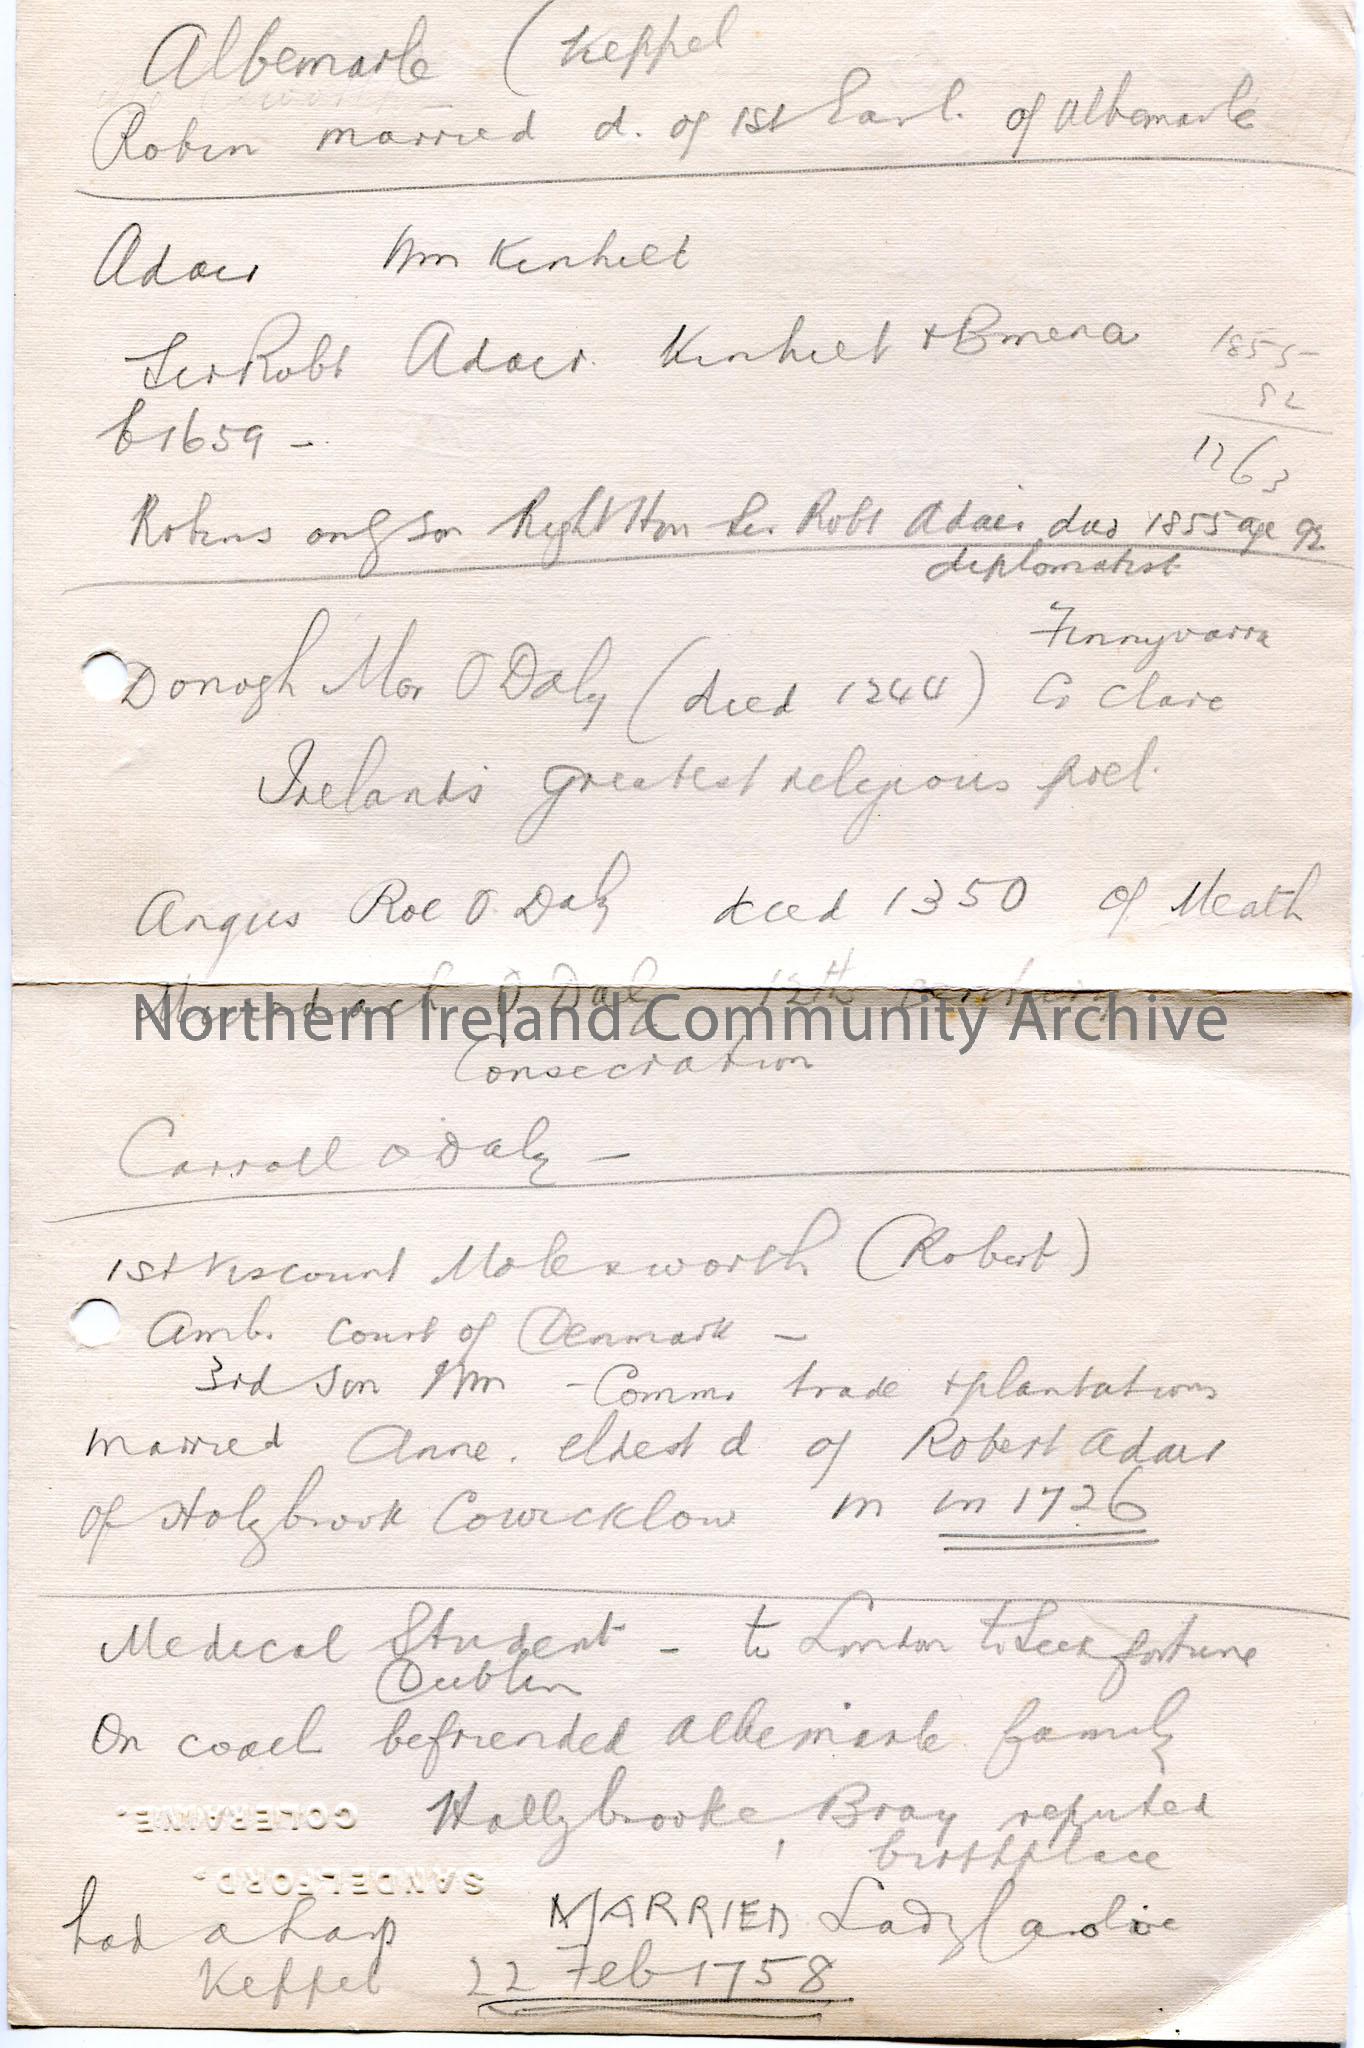 Albemarle (Keppel
Robin married d. of 1st Earl. of Albemarle
Adair Wm Kinhilt
Sir Robt Adair. Kinhilt + Bmena
1855
92
1763
b 1659 -
Robins only son Right Hon Sir Robt Adair died 1855 age 92
diplomatist
Finnyvarra
Donogh Mor O Daly (died 1244) Co Clare
Irelands greatest religious poet.
Angus Roe O. Daly died 1350 of Meath
Muredach O Daly 12th century
Northern Ireland Community Archive
Consecration
Carroll O Daly -
1st Viscount Molesworth (Robert)
Amb. Court of Denmark -
3rd Son Wm - Commr trade + plantations
married Anne. eldest d of Robert Adair
of Holybrook Co Wicklow in in 1726
Medical Student - to London to seek fortune
Dublin
On coach befriended Albemarle family
Hollybrooke Bray reputed
birthplace
COLERAINE.
SANDELFORD.
had a harp MARRIED Lady Caroline
Keppel 22 Feb 1758